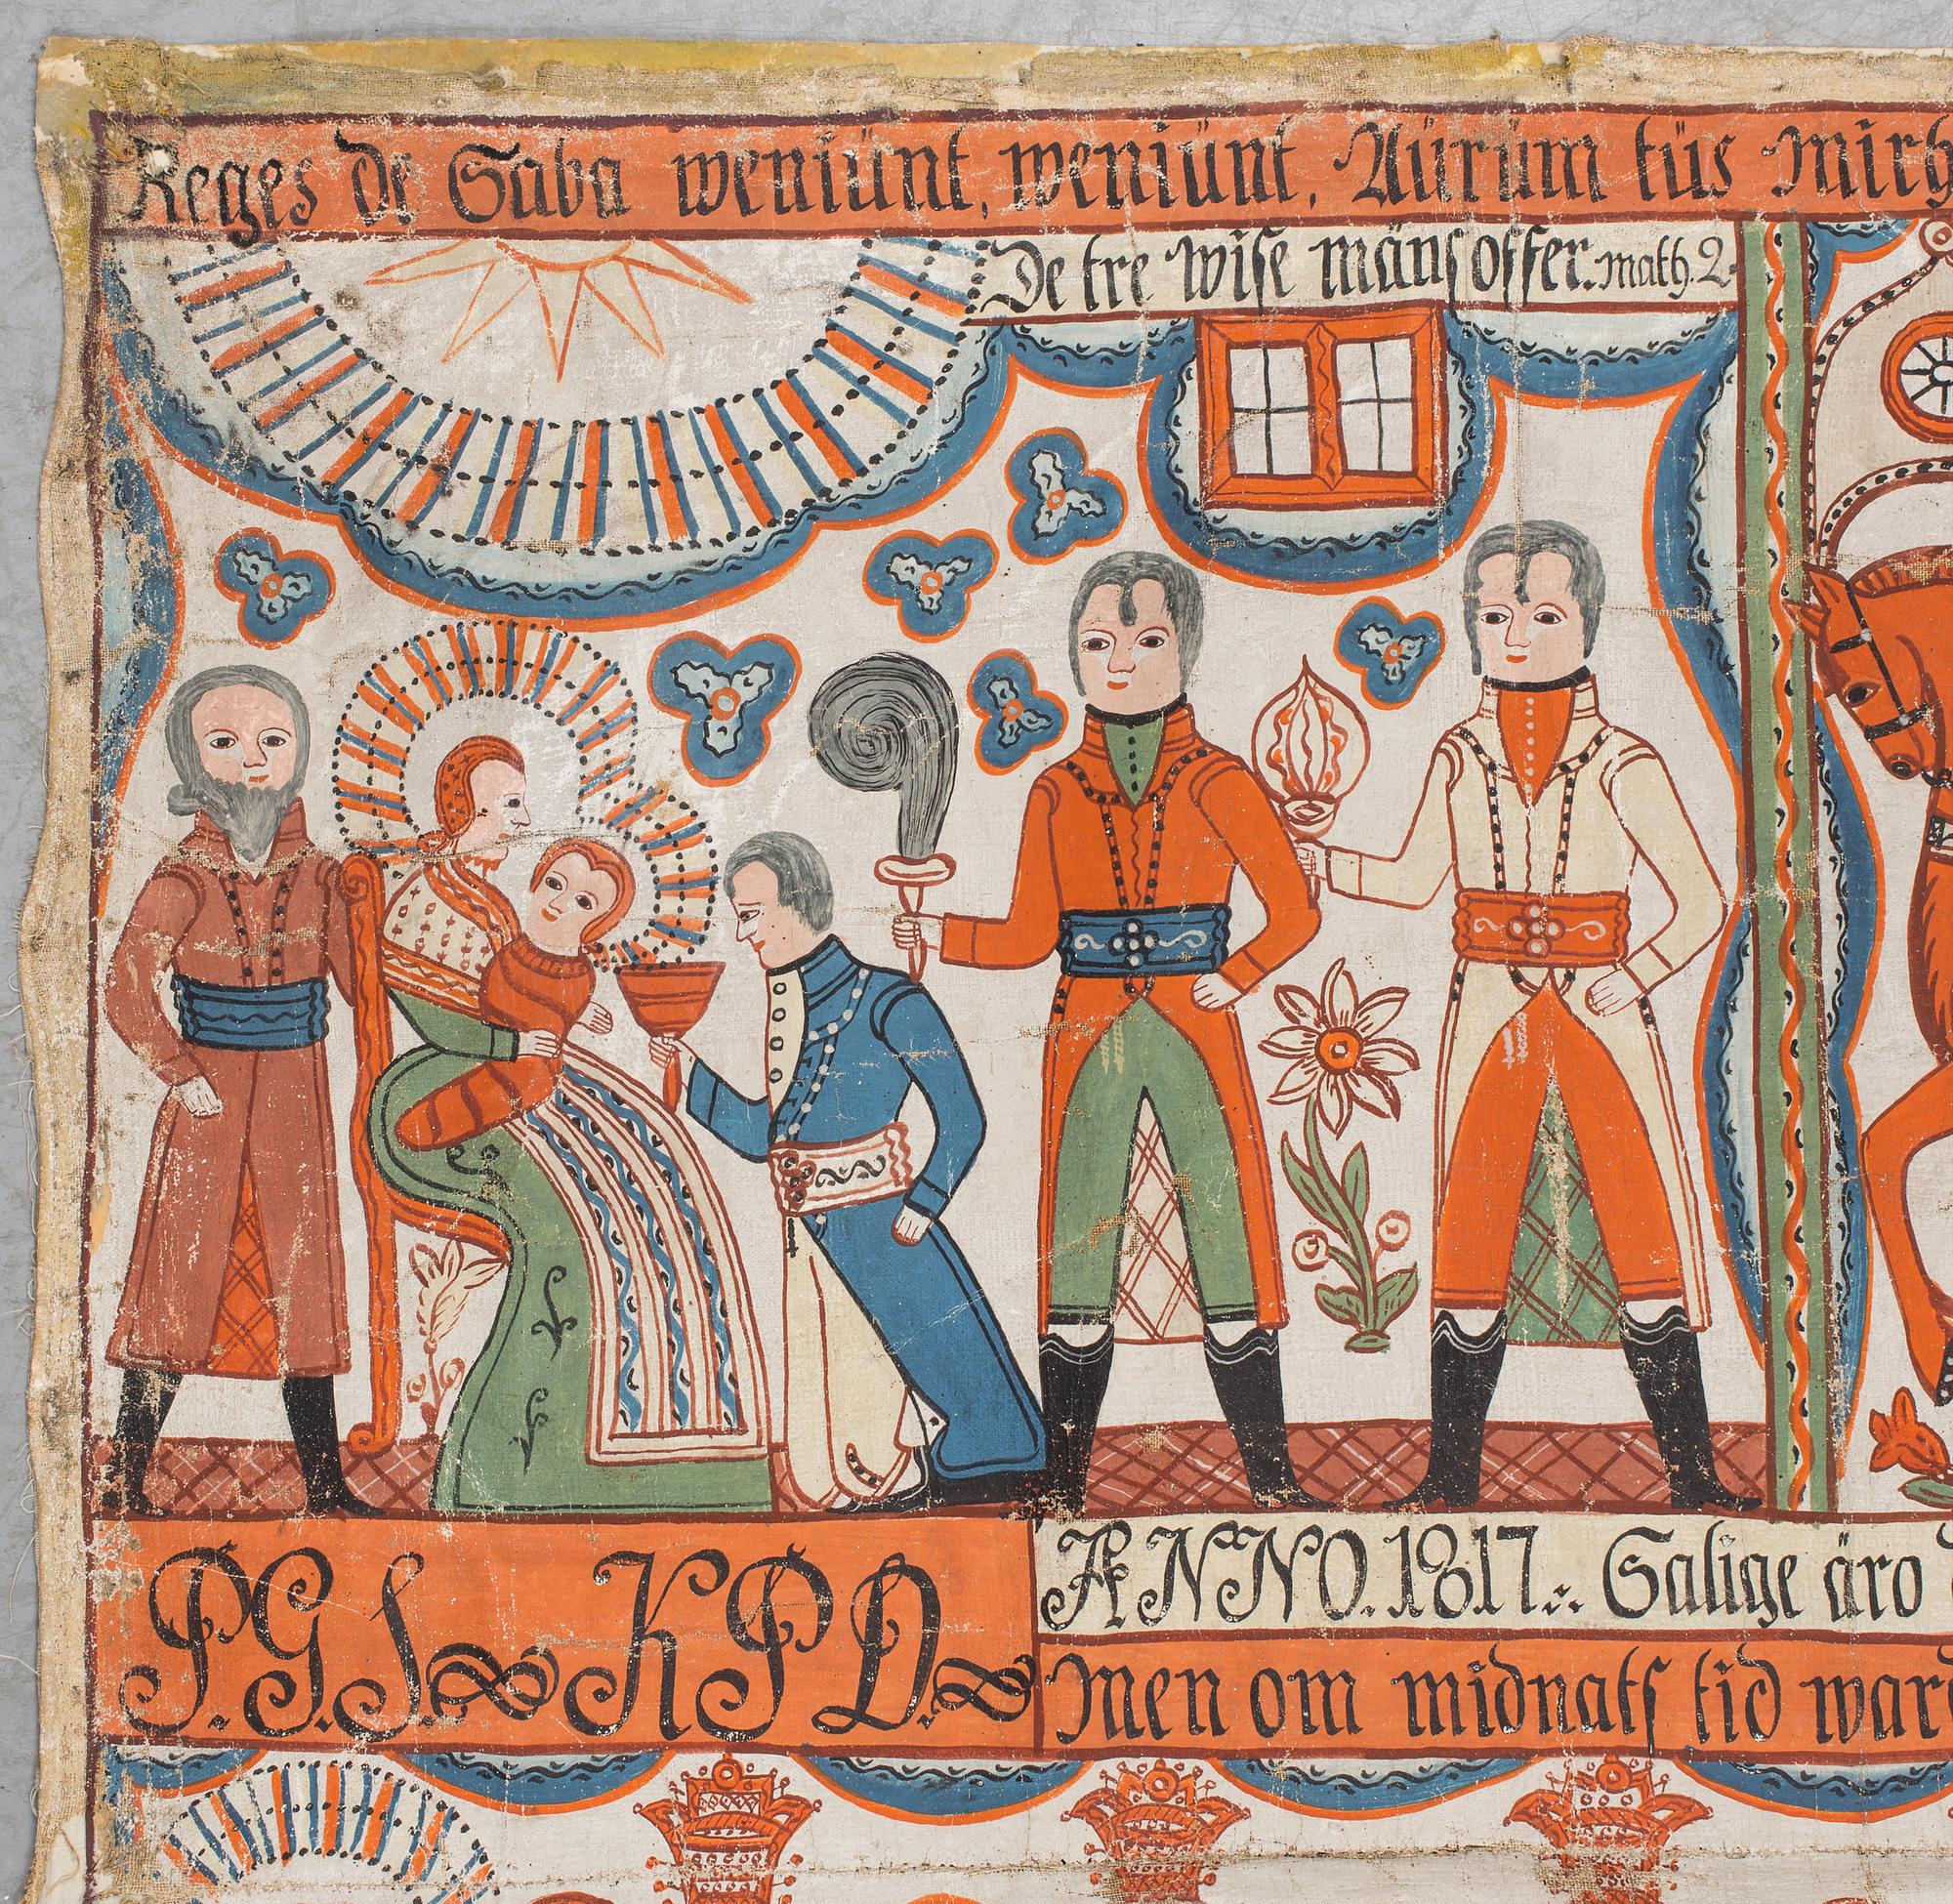 Reges de Saba weniünt, weniünt, Aürüm tüs Mirh
De tre wise mäns offer. math. 2.
P. G. S. K P D.
ÆNNO. 1817. Salige äro
Men om midnats tid ward